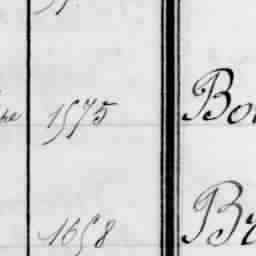 1575 Bo
1658 Br